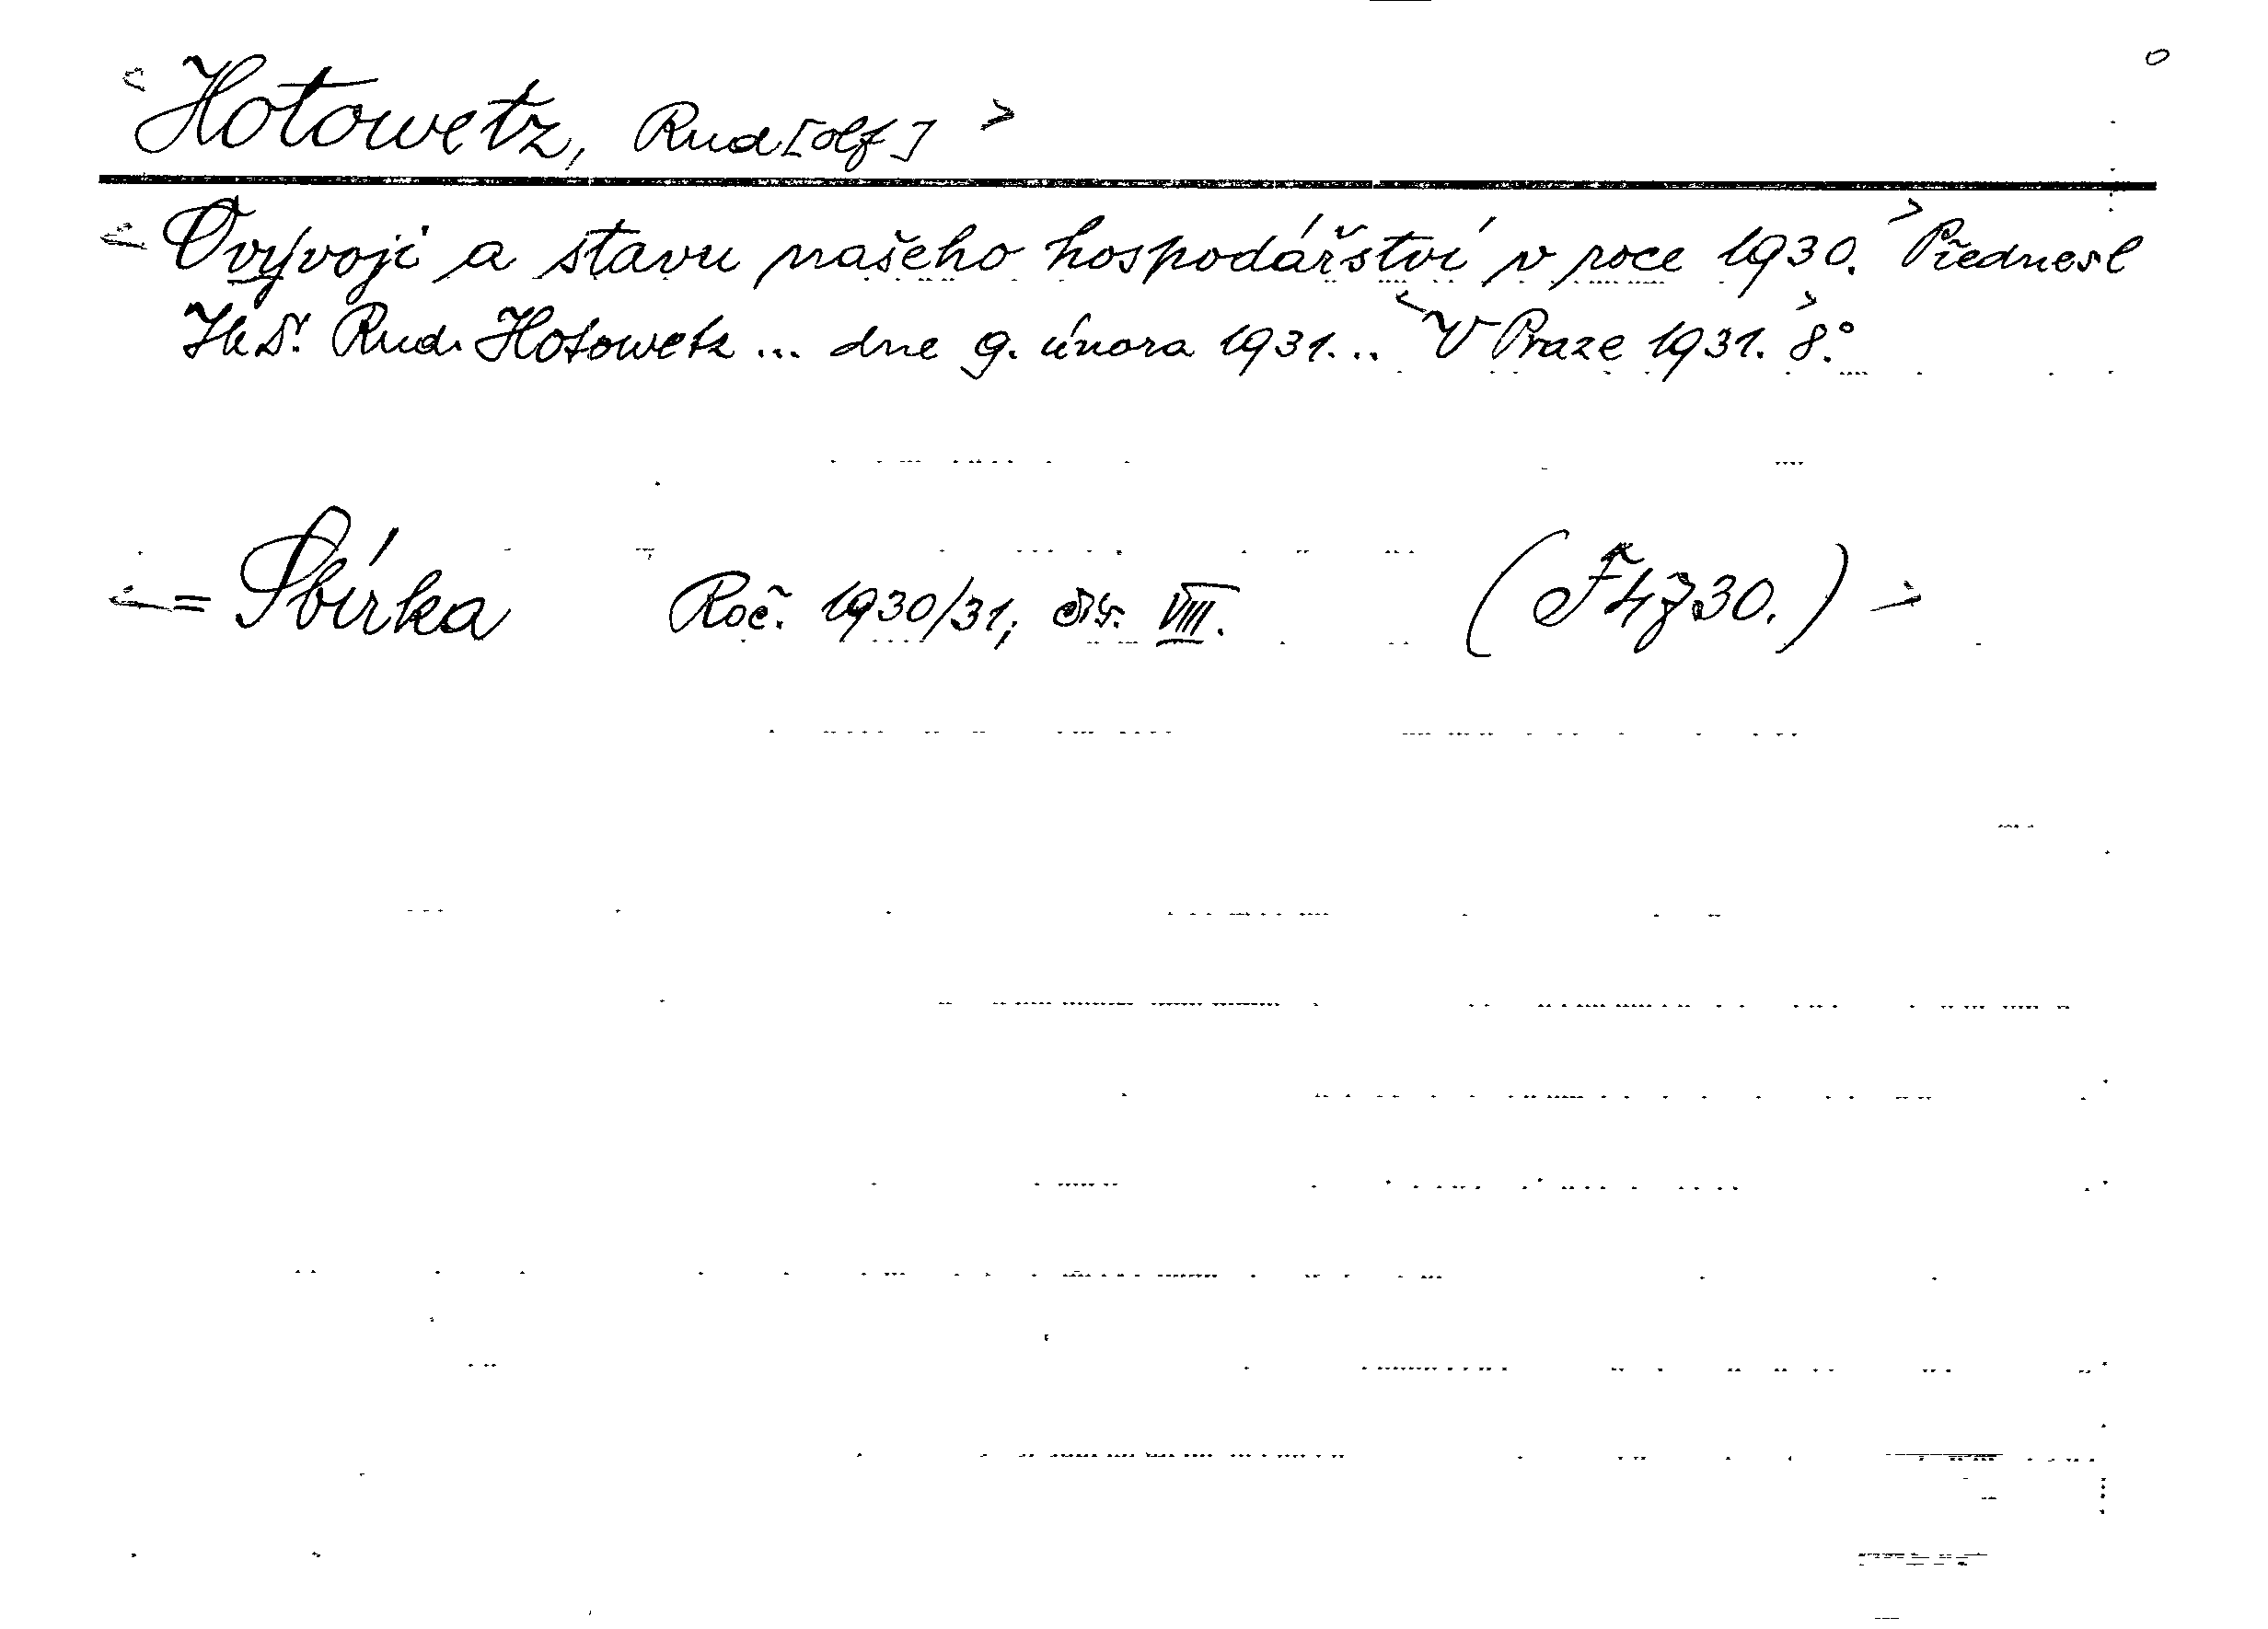 <Hotowetz, Rud[olf]>
<O vývoji a stavu našeho hospodářství v roce 1930.> Přednesl
JUDr. Rud. Hotowetz ... dne 9. února 1931... <V Praze 1931.> 8.°
<= Sbírka Roč. 1930/31, čís. VIII. (F 4730.)>